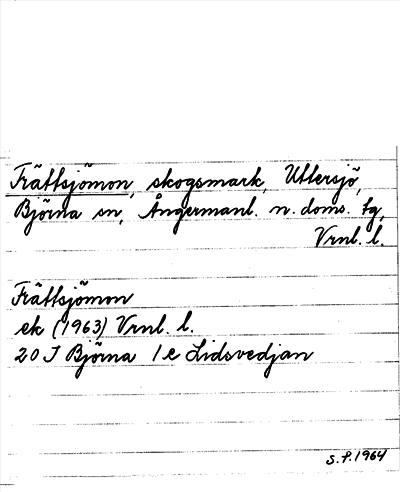 Trättsjömon, skogsmark, Uttersjö,
Björna sn, Ångermanl. n. doms. tg,
Vrnl. l.
Trättsjömon
ek (1963) Vrnl. l.
20 J Björna 1 e Lidsvedjan
S.P. 1964